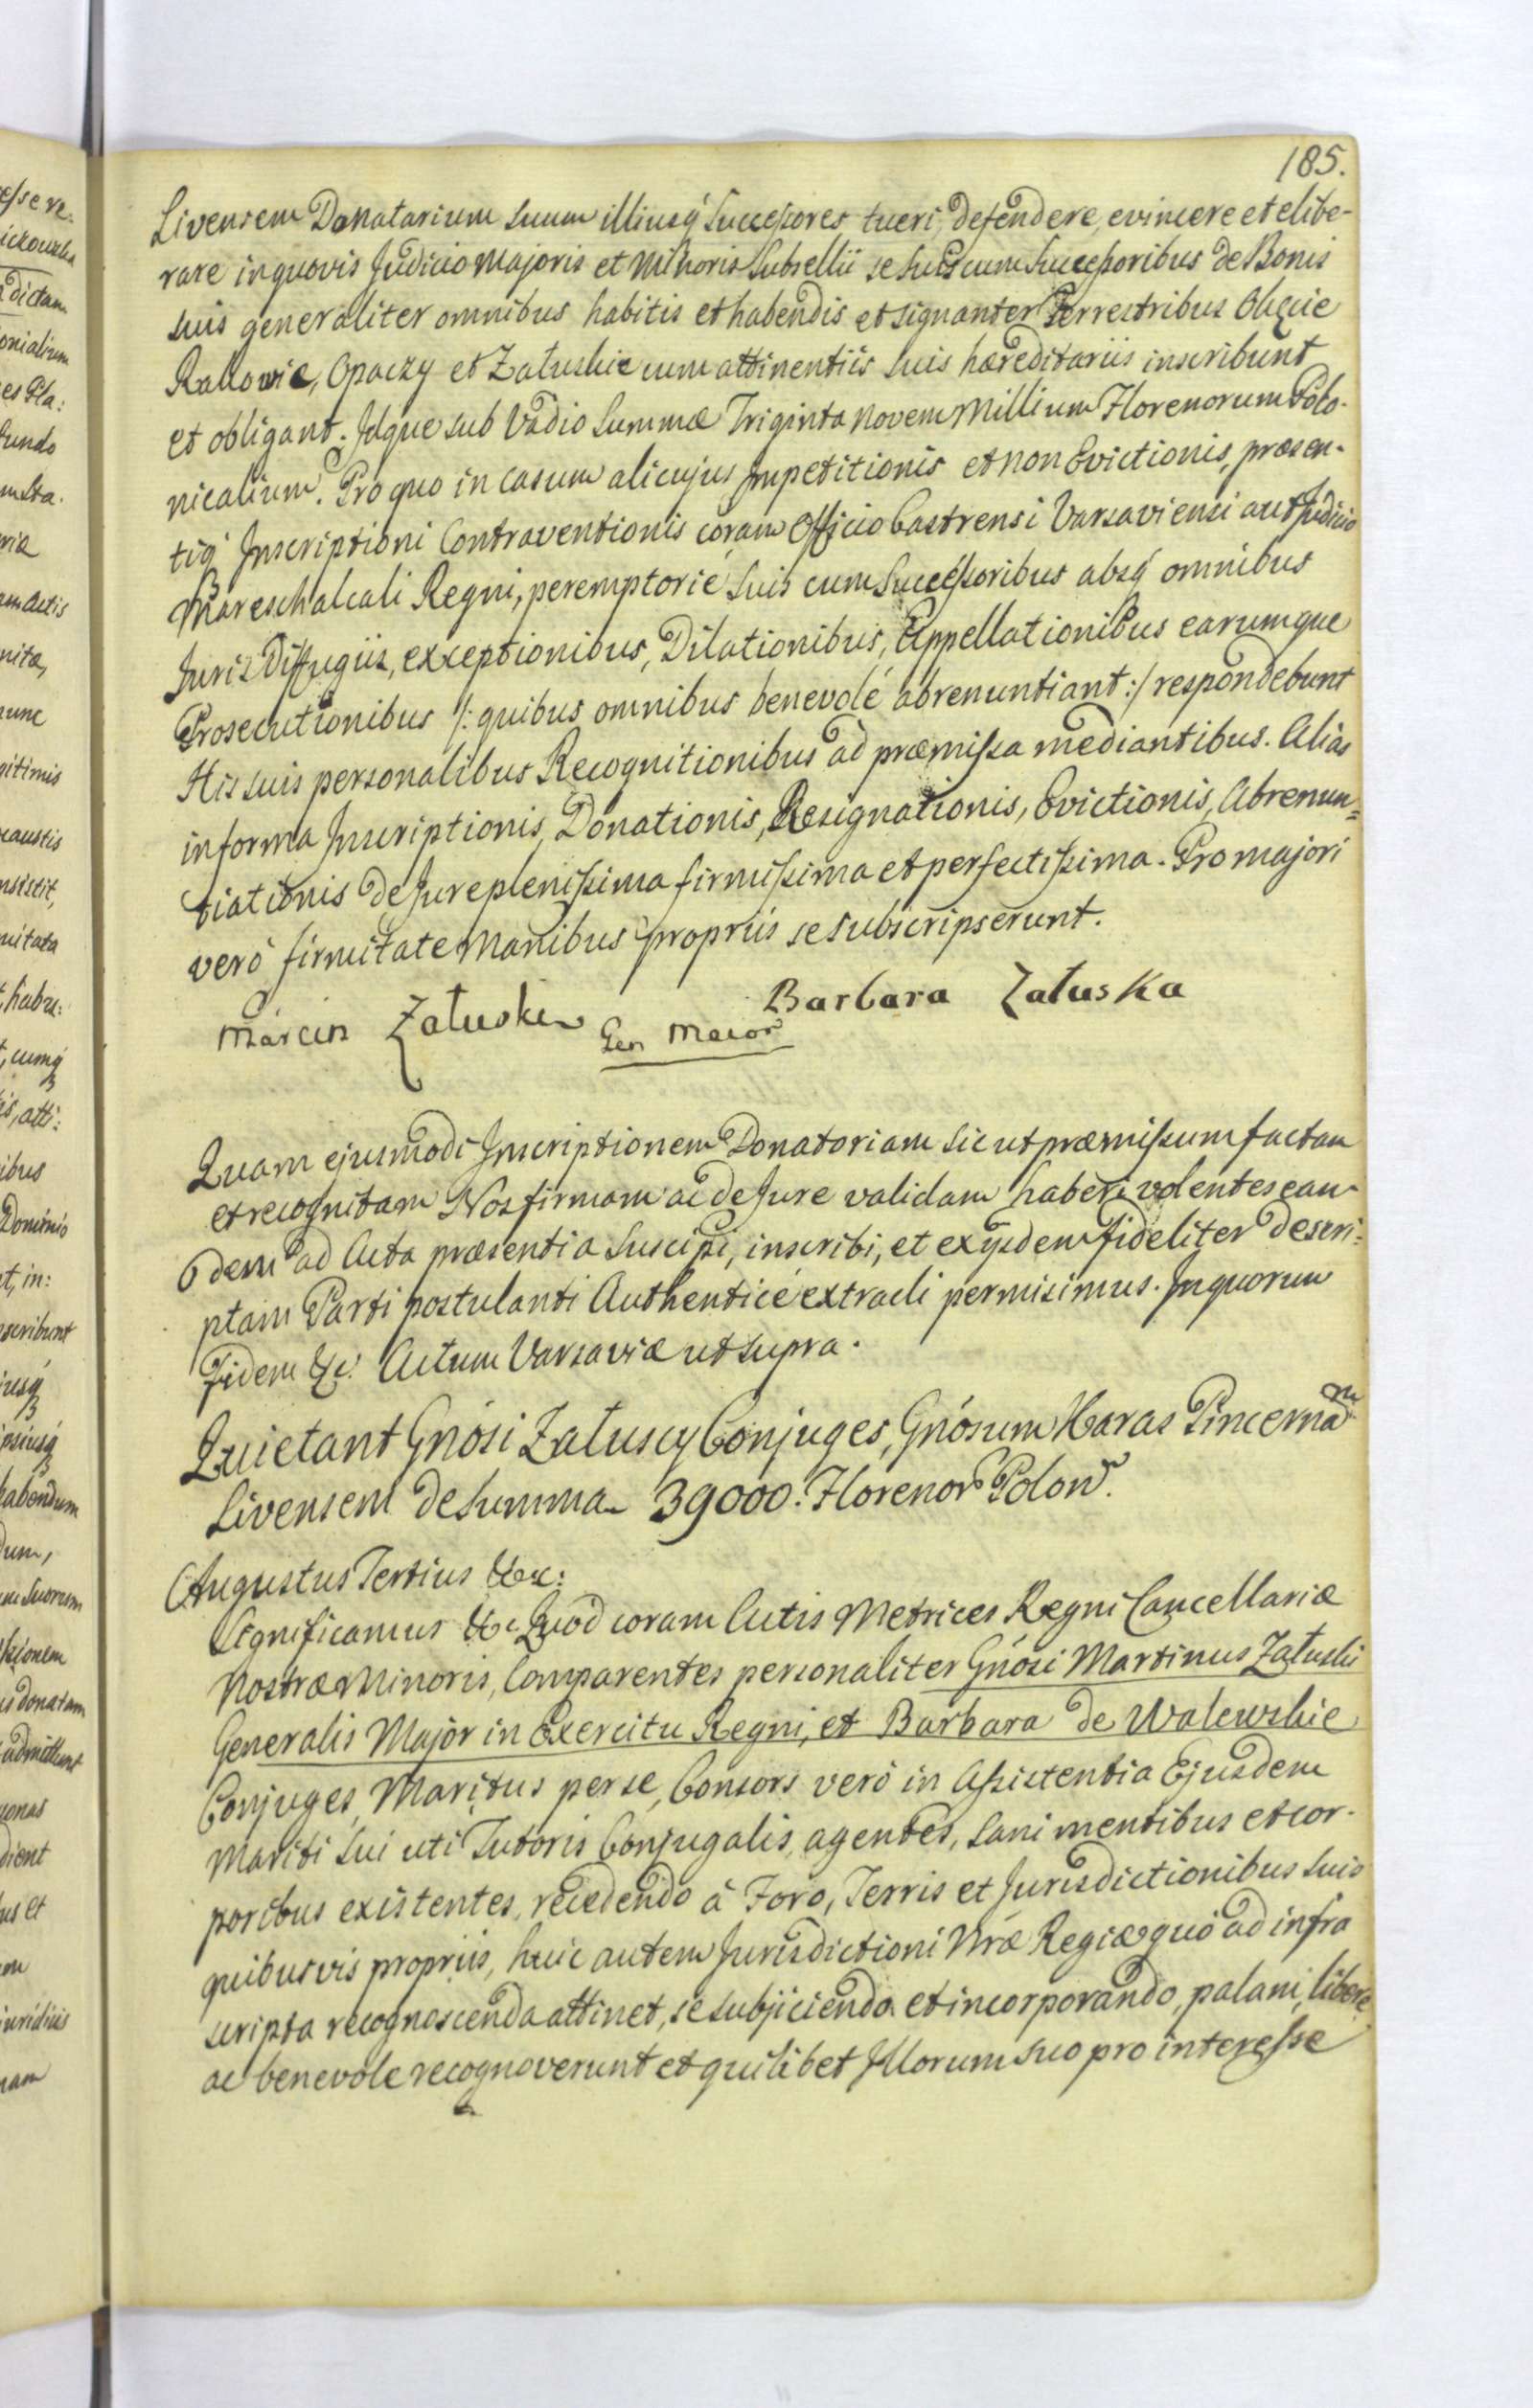 185.
Livensem Donatarium suum illiusq́ Successores tueri, defendere, evincere et elibe-
rare in quovis Judicio Majoris et Minoris Subsellii se suis cum Successoribus de Bonis
suis generaliter omnibus habitis et habendis et signanter Terrestribus Okęcie
Rakowie, Opaczy et Załuskie cum attinentiis suis hæreditariis inscribunt
et obligant. Idque sub Vadio Summæ Triginta Novem Millium Florenorum Polo-
nicalium. Pro quo in casum alicujus Impetitionis et non Evictionis, præsen-
tiq́ Inscriptioni Contraventionis coram Officio Castrensi Varsaviensi aut Judicio
Mareschalcali Regni, peremptorie suis cum Successoribus absq́ omnibus
Juris Diffugiis, exceptionibus, Dilationibus, Appellationibus earumque
Prosecutionibus /: quibus omnibus benevolé abrenuntiant :/ respondebunt
His suis personalibus Recognitionibus ad præmissa mediantibus. Alias
in forma Inscriptionis, Donationis, Resignationis, Evictionis, Abrenun=
tiationis de Jure plenissima firmissima et perfectissima. Pro majori
verò firmitate Manibus propriis se subscripserunt.
Marcin Załuski Gen Maior Barbara Załuska
Quam ejusmodi Inscriptionem Donatoriam sicut præmissum factam
et recognitam Nos firmam ac de Jure validam haberi volentes ean-
dem ad Acta præsentia suscipi, inscribi, et ex ijsdem fideliter descri:
ptam Parti postulanti Authenticé extradi permisimus. In quorum
Fidem &c. Actum Varsaviæ ut supra.
Quietant Gnósi Załuscy Conjuges, Gnósum Karas Pincernam
Livensem de Summa 39000. Florenor Polon.
Augustus Tertius &c:
Significamus &c. Quod coram Actis Metrices Regni Cancellariæ
Nostræ Minoris, Comparentes personaliter Gnósi Martinus Załuski
Generalis Major in Exercitu Regni, et Barbara de Walewskie
Conjuges, Maritus per se, Consors verò in Assistentia Ejusdem
Mariti sui uti Tutoris Conjugalis, agentes, sani mentibus et cor-
poribus existentes, recedendo à Foro, Terris et Jurisdictionibus suis
quibusvis propriis, huic autem Jurisdictioni Nræ Regiæ quò ad infra
scripta recognoscenda attinet, se subjiciendo et incorporando, palam, libere
ac benevole recognoverunt et quilibet Illorum suo pro interesse